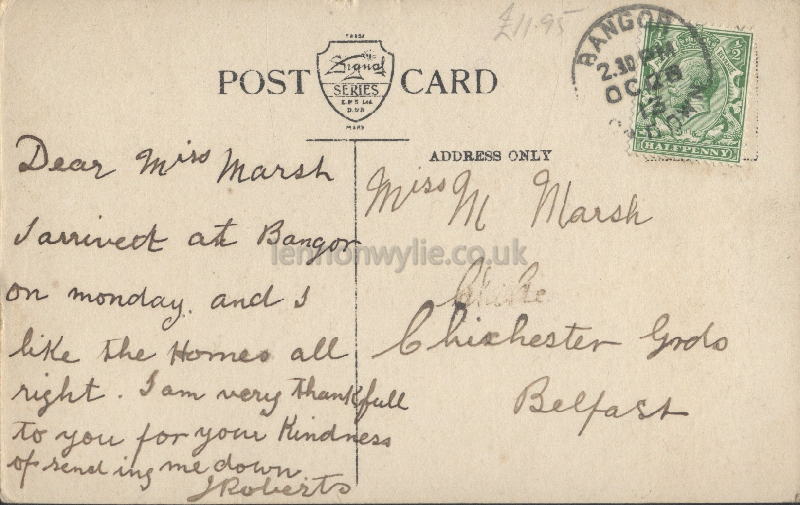 £11.95
BANGOR
2.30 PM
OC 28
CO. DOWN
HALFPENNY
TRADE
Signal
SERIES
E.P.S Ltd.
D.&B
MARK
POST CARD
ADDRESS ONLY
Dear Miss Marsh
I arrived at Bangor
on monday. and I
like the Homes all
right. I am very thankfull
to you for your Kindness
of sending me down
J Roberts
Miss M Marsh
Chichester Grds
Belfast
lennonwylie.co.uk